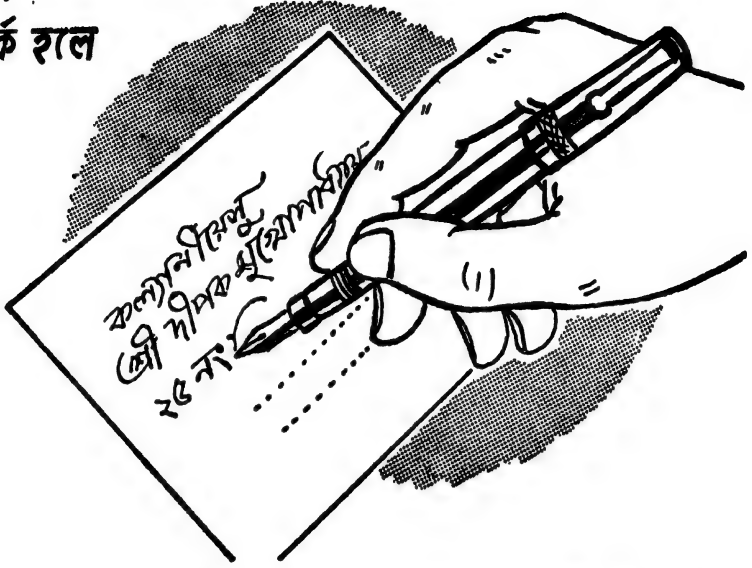 র্ক হলে
কল্যানীয়েষু
শ্রী দীপক মুখোপাধ্যায়
২৫ নং